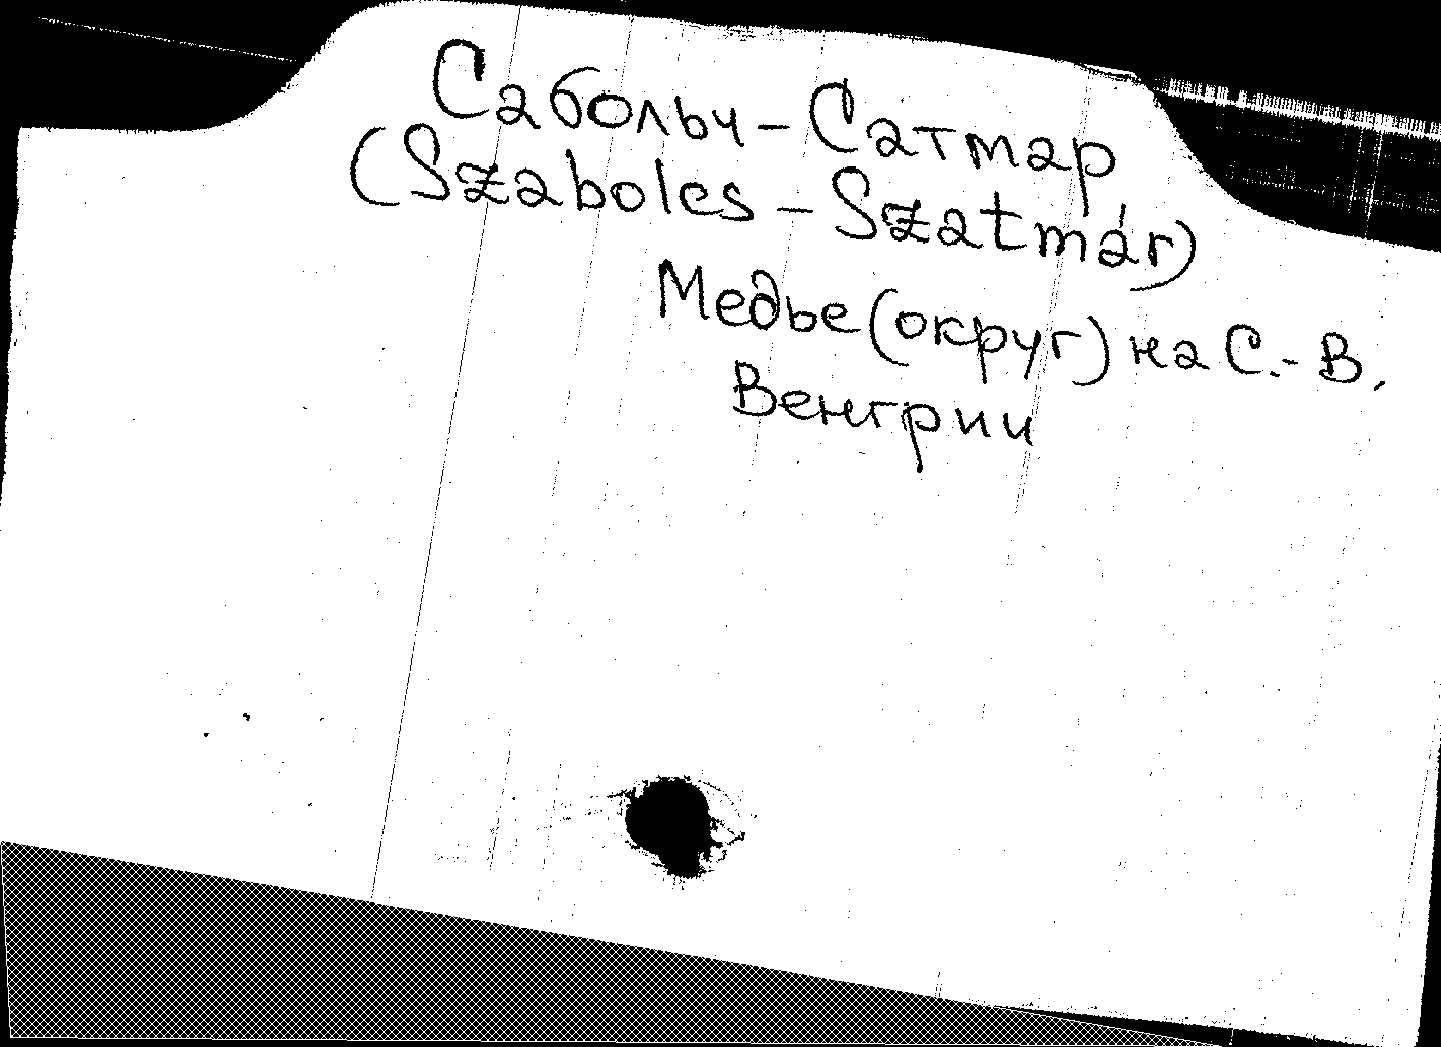 Сабольч-Сатмар
(Szaboles-Szatmár)
Медье (округ) на С.-В.
Венгрии